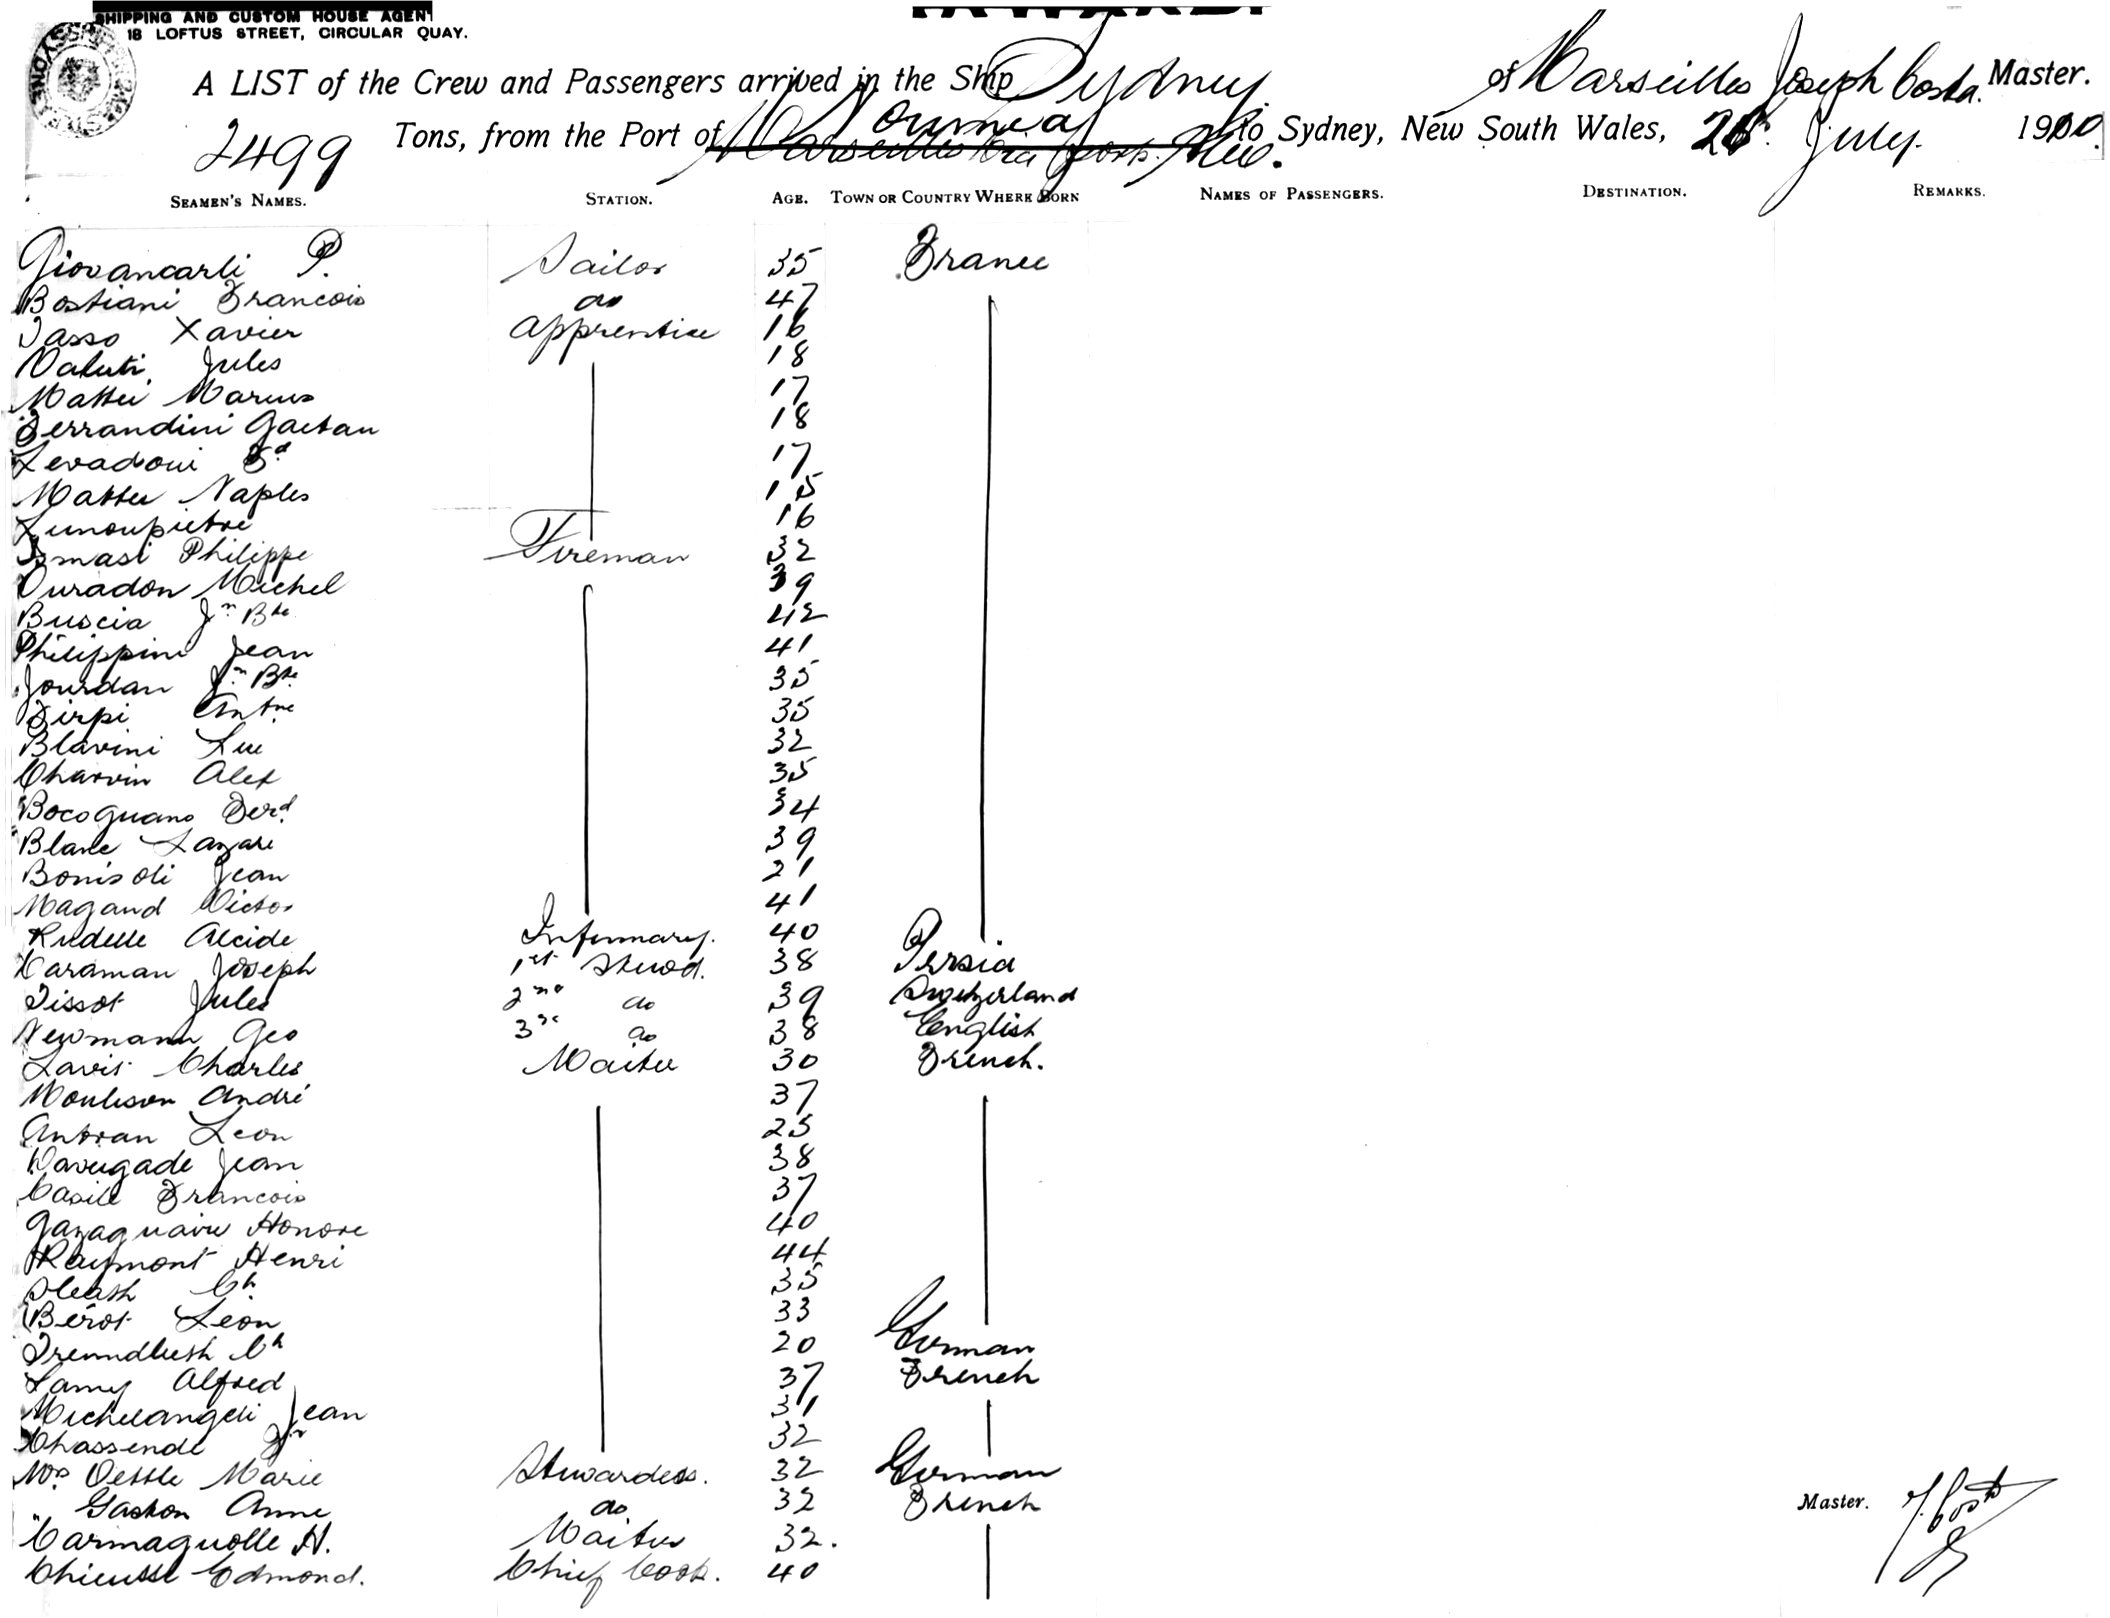 SHIPPING AND CUSTOM HOUSE AGENT
18 LOFTUS STREET, CIRCULAR QUAY.
A LIST of the Crew and Passengers arrived in the Ship Sydney of Marseilles Joseph Costa Master.
2499 Tons, from the Port of Noumea to Sydney, New South Wales, July 1900.
SEAMEN'S NAMES. STATION. AGE. TOWN OR COUNTRY WHERE BORN NAMES OF PASSENGERS. DESTINATION. REMARKS.
Giovancarli P. Sailor 35 France
Bastiani Francois do 47
Tasso Xavier Apprentice 16
Valuti Jules 18
Mattei Marius 17
Ferrandini Gaetan 18
Levadoui Fd 17
Mattei Naples 15
16
Philippe Fireman 32
Duradon Michel 39
Buscia Jn Bte 42
Philippini Jean 41
Jourdan Jn Bte 35
Firpi Antne 35
Blavini Luc 32
Charvin Alex 35
Bocognano Ferd 34
Blanc Lazare 39
Bonisoli Jean 21
Magand Victor 41
Rudelle Alcide Infirmary. 40
Karaman Joseph 1st Stewd. 38 Persia
Tissot Jules 2nd do 39 Switzerland
Newmann Geo 3rd do 38 English
Lavis Charles Waiter 30 French.
Moulison André 37
Antran Leon 25
Jean 38
Casile Francois 37
Gazagnaire Honore 40
Raymont Henri 44
Sleath Ch. 35
Bérot Leon 33
Ch 20 German
Lamy Alfred 37 French
Michelangeli Jean 31
Chassende Jn 32
Mrs Oettle Marie Stewardess. 32 German
" Gaston Anne do 32 French
Carmagnolle H. Waiter 32.
Chieusse Edmond. Chief Cook. 40
Master. J. Costa